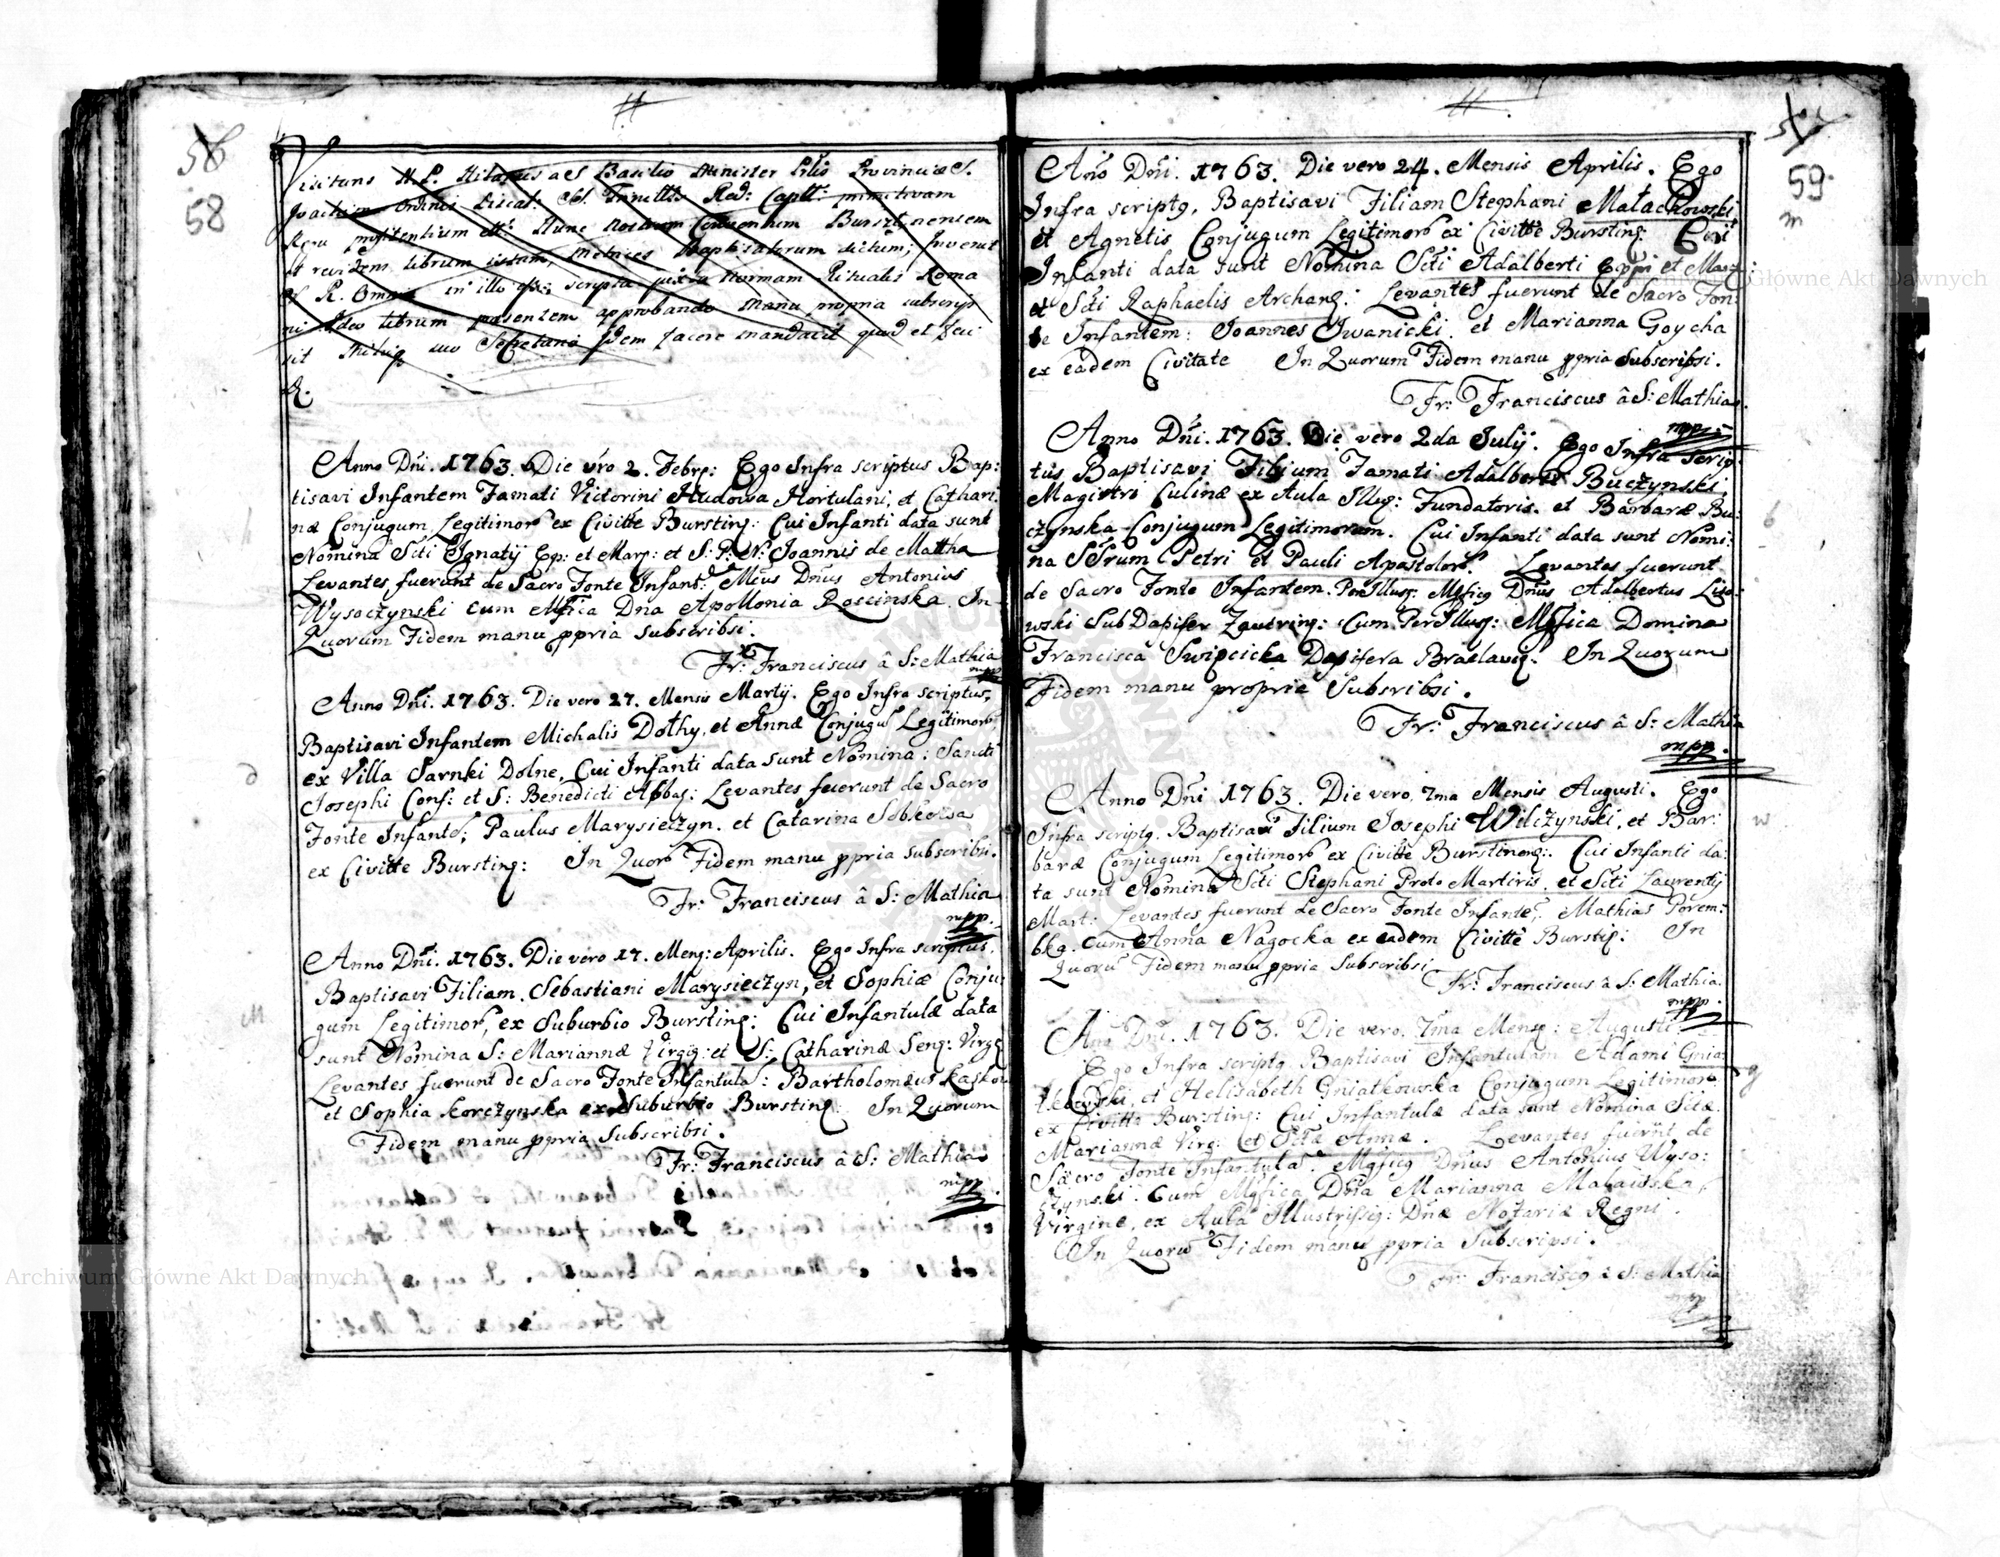 56
58
Visitans A. P. Hilarius a S. Basilio Minister Prov Provinciæ S.
Joachim Ordinis Discal: SS. Trinittis Red: Captt: primitivam
profitentium etc: Hunc nostrum Conventum Bursztynensem
et revidens librum istum, metrices Baptisatorum dictum; Invenit
Omnia in illo esse scripta juxta normam Ritualis Roma
ni Ideo librum præsentem approbando manu propria subscrip
sit suo Secretario Idem facere mandavit quod et feci
Anno Dni. 1763. Die vro 2. Febrs: Ego Infra scriptus Bap:
tisavi Infantem Famati Victorini Hudowa Hortulani, et Cathari
næ Conjugum Legitimorũ ex Civitte Bursting: Cui Infanti data sunt
Nomina Scti Ignatij Ep: et Mart: et S: P: N: Joannis de Mattha
Levantes fuerunt de Sacro Fonte Infant: Mcus Dnus Antonius
Wysoczynski cum Mfica Dna Apollonia Roscinska. In
Quorum Fidem manu ppria Subscribsi.
Fr: Franciscus â S: Mathia
mpp
Anno Dni. 1763. Die vero 27. Mensis Martij. Ego Infra scriptus,
Baptisavi Infantem Michalis Dothy, et Annæ Conjugũ Legitimorũ
ex Villa Sarnki Dolne, Cui Infanti data sunt Nomina: Sancti
Josephi Conf: et S: Benedicti Abbas: Levantes fuerunt de Sacro
Fonte Infantẽ; Paulus Marysieczyn. et Catarina Sobkoesa
ex Civitte Bursting: In Quorũ Fidem manu ppria Subscribsi.
Fr: Franciscus â S: Mathia
mpp.
Anno Dni. 1763. Die vero 17. Mens: Aprilis. Ego Infra scriptus.
Baptisavi Filiam. Sebastiani Marysieczyn, et Sophiæ Conju
gum Legitimorũ, ex Suburbio Bursting: Cui Infantulæ data
sunt Nomina S: Mariannæ Virgis: et S: Catharinæ Sens: Virgs
Levantes fuerunt de Sacro Fonte Infantulã: Bartholomæus Kaskow
et Sophia Korczynska ex Suburbio Bursting: In Quorum
Fidem manu ppria Subscribsi.
Fr: Franciscus â S: Mathia
mpp.
59.
m
Año Dni. 1763. Die vero 24. Mensis Aprilis. Ego
Infra scripts, Baptisavi Filiam Stephani Małachowski
et Agnetis Conjugum Legitimorũ ex Civitte Bursting: Cui
Infanti data sunt Nomina Scti Adalberti Eppi et Mart:
et Scti Raphaelis Archang: Levantes fuerunt de Sacro Fon:
te Infantem: Joannes Iwanicki. et Marianna Goycha
ex eadem Civitate In Quorum Fidem manu ppria Subscribsi.
Fr: Franciscus â S: Mathia.
mpp.
Anno Dni. 1763. Die vero 2da Julij. Ego Infra Scrip:
tus Baptisavi Filium Famati Adalberti Buczynski,
Magistri Culinæ ex Aula Illus: Fundatoris. et Barbaræ Bu:
czynska Conjugum Legitimorum. Cui Infanti data sunt Nomi:
na SSrum Petri et Pauli Apostolorũ. Levantes fuerunt
de Sacro Fonte Infantem. Per Illus: Mgficus Dnus Adalbertus Liso:
wski SubDapifer Zawtring: Cum Per Illus: Mgfica Domina
Francisca Swipcicka Dapifera Braclavs: In Quorum
Fidem manu propria Subsribsi.
Fr: Franciscus â S: Mathia
mpp.
Anno Dni 1763. Die vero 7ma Mensis Augusti. Ego
Infra scripts. Baptisavi Filium Josephi Wilczynski, et Bar:
baræ Conjugum Legitimorũ ex Civitte Burstinens: Cui Infanti da:
ta sunt Nomina Scti Stephani Proto Martiris. et Scti Laurentij
Mart: Levantes fuerunt de Sacro Fonte Infantẽ: Mathias Porem:
bks. cum Anna Nagocka ex eadem Civitte Burstis: In
Quorũ Fidem manu ppria Subscribsi
Fr: Franciscus â S: Mathia.
mpp.
Año Dni. 1763. Die vero. 7ma Mens: Augusti.
Ego Infra scripts. Baptisavi Infantulam Adami Gnia:
tkowski, et Helisabeth Gniatkowska Conjugum Legitimorũ
ex Civitte Bursting: Cui Infantulæ data sunt Nomina Sctæ
Mariannæ Virg: et Sctæ Annæ. Levantes fuerũt de
Sacro Fonte Infantulã: Mgficus Dnus Antonius Wyso:
czynski. Cum Mgfica Dna Marianna Malawska,
Virgine, ex Aula Illustrissis: Dnæ Notariæ Regni.
In Quorũ Fidem manu ppria Subscripsi.
Fr: Franciscs â S: Mathia
mpp
Archiwum Główne Akt Dawnych
Główne Akt Dawnych